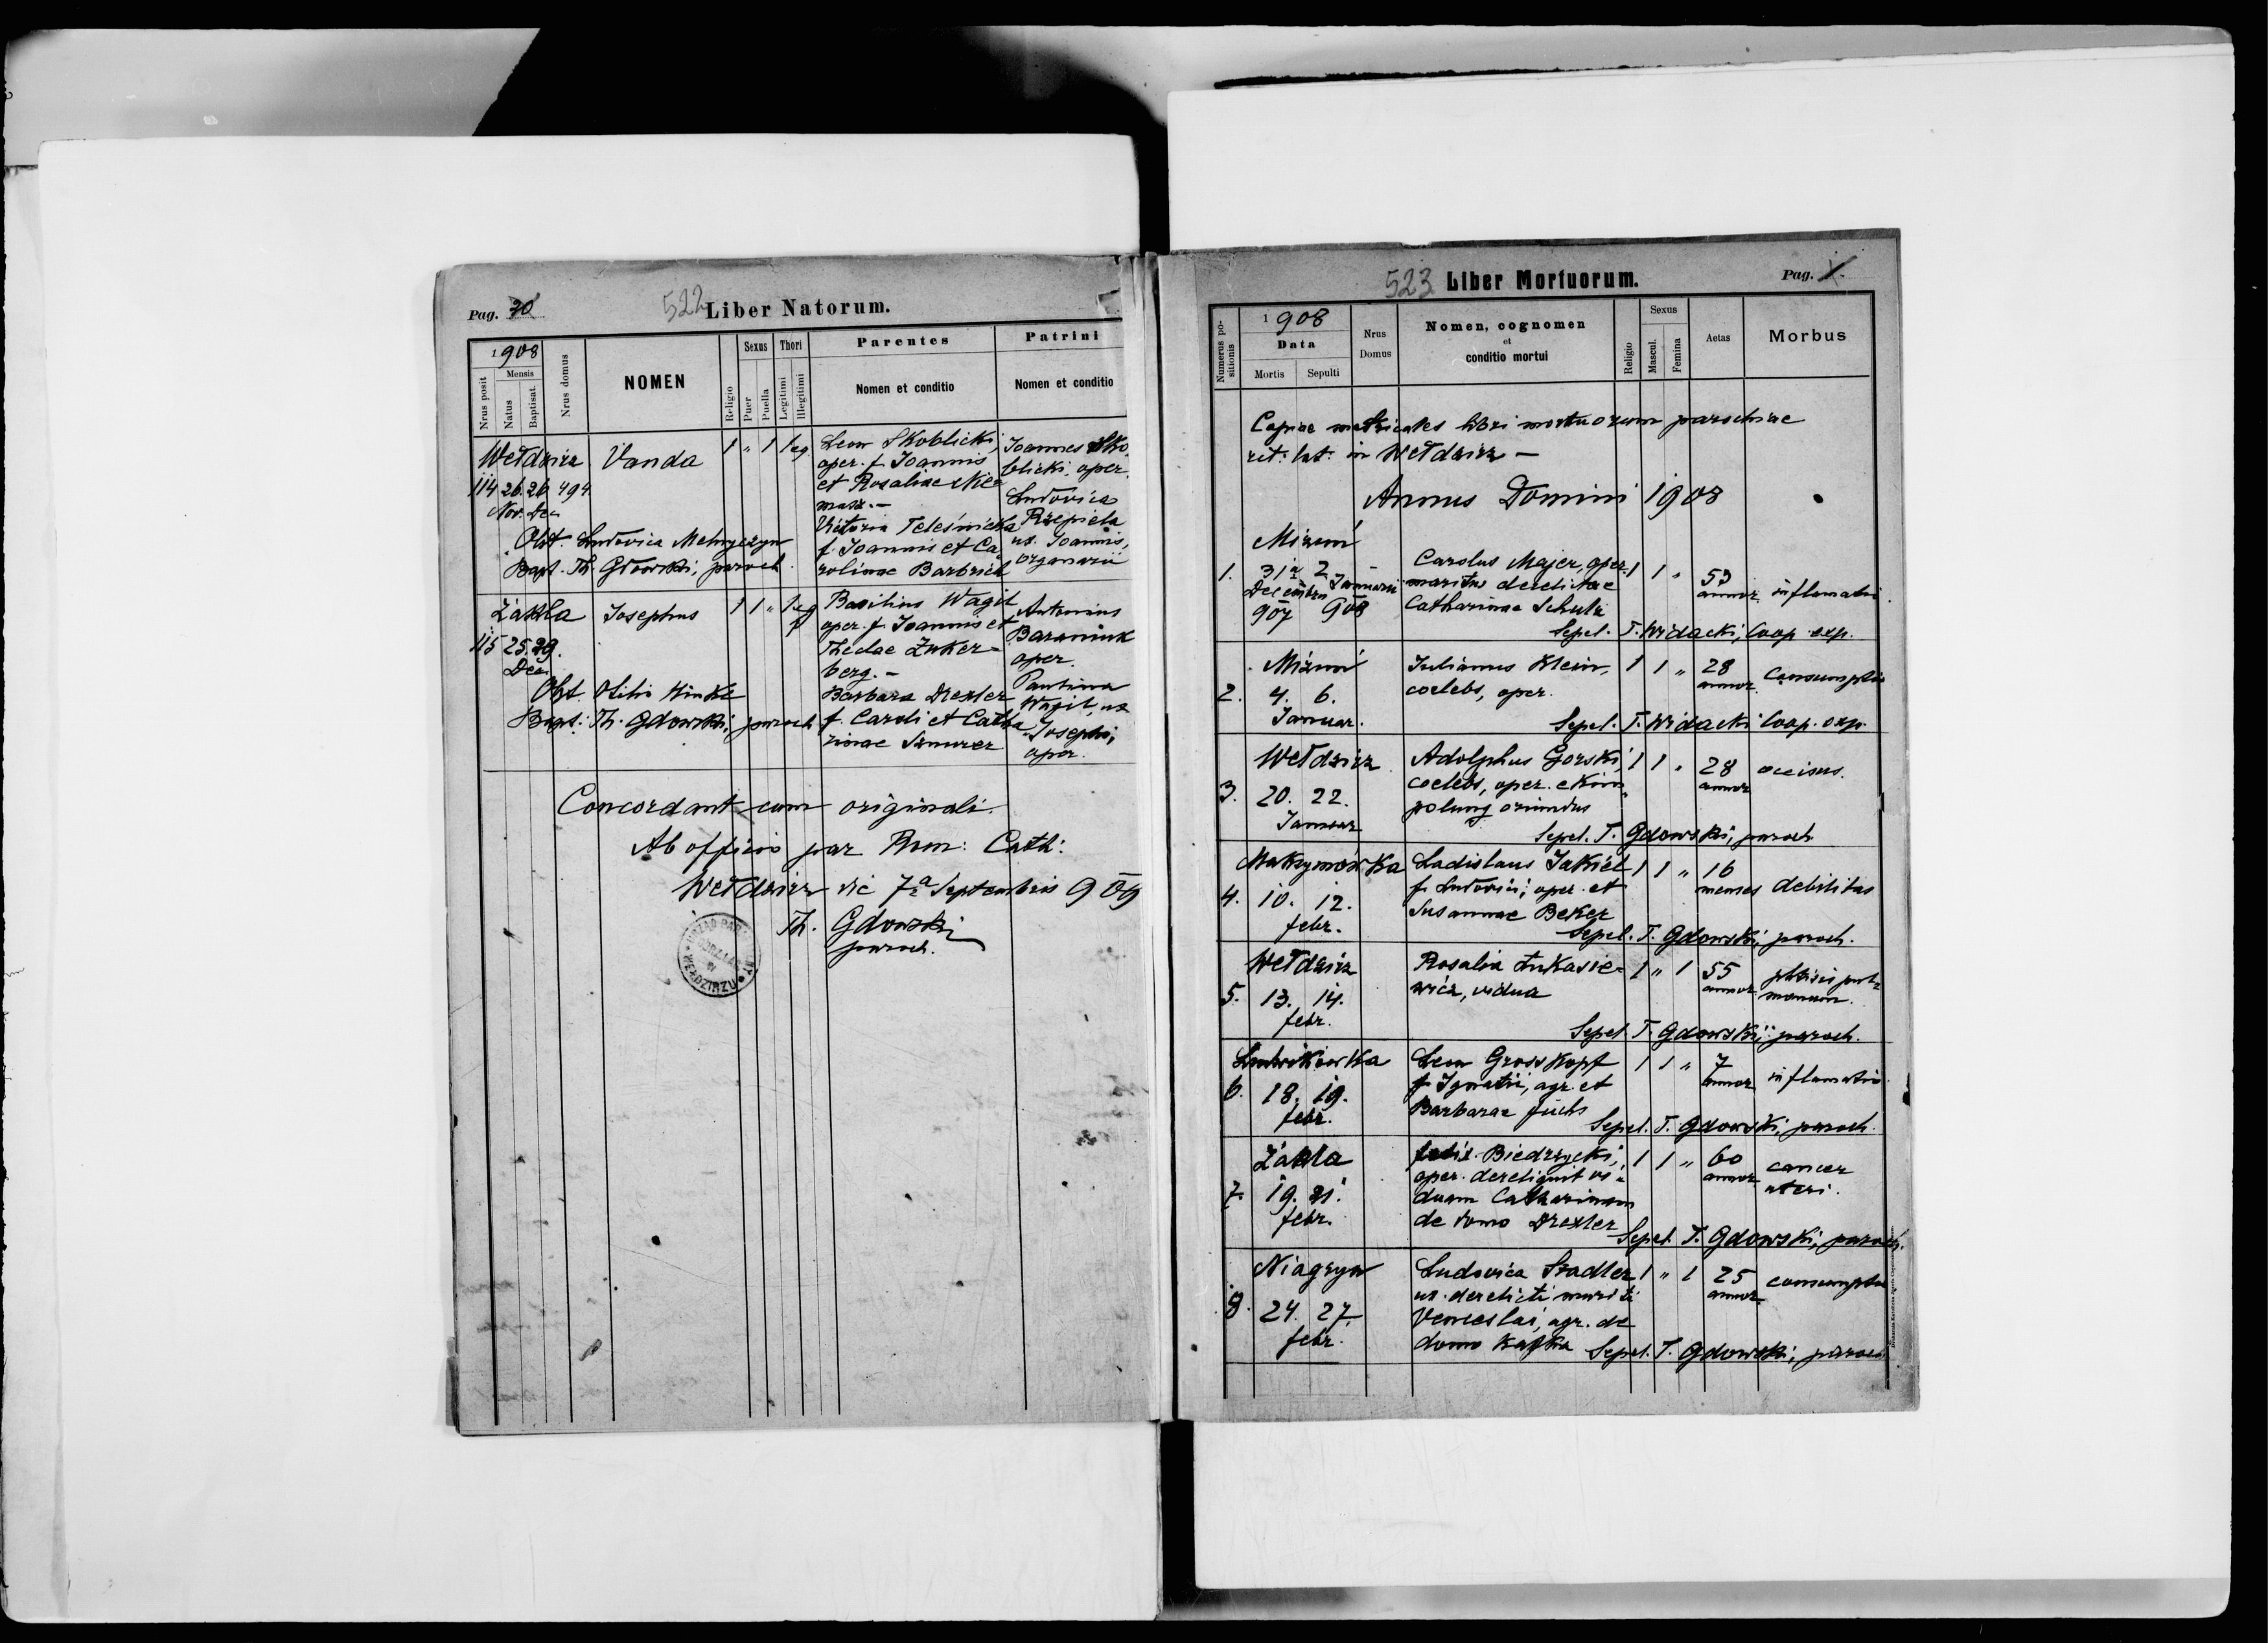 Pag. 20
522 Liber Natorum.
1908
Nrus posit
Mensis
Natus
Baptisat.
Nrus domus
NOMEN
Religio
Sexus
Puer
Puella
Thori
Legitimi
Illegitimi
Parentes
Nomen et conditio
Patrini
Nomen et conditio
Wełdzirz
114 26. 26. 494
Nov. Dec.
Vanda
1 " 1 leg.
Leon Skoblicki,
oper. f. Joannis
et Rosaliae
Victoria Teleśnicka
f. Joannis et Ca=
rolinae Barbrich
Joannes Sko=
blicki, oper.
Ludovica
Rzepiela
ux. Joannis,
organarii
Obst. Ludovica Melnyczyn
Bapt. Th. Gdowski, paroch.
Zakla
115 25. 29.
Dec.
Josephus
1 1 " leg
Basilius Wagil
oper. f. Joannis et
Theclae Zuker=
berg. -
Barbara Drexler
f. Caroli et Catha
rinae Szmurer
Antonius
Baraniuk
oper.
Paulina
Wagil, ux
Josephi,
oper.
Obst. Otilia Hinkl
Bapt: Th. Gdowski, paroch
Concordant cum originali.
Ab officio par Rom: Cath:
Wełdzirz die 7a Septembris 909
Th. Gdowski
paroch.
523 Liber Mortuorum.
Pag. 1.
Numerus po-
sitionis
1908
Data
Mortis
Sepulti
Nrus
Domus
Nomen, cognomen
et
conditio mortui
Religio
Sexus
Mascul.
Femina
Aetas
Morbus
Copiae metricales libri mortuorum parochiae
rit: lat: in Wełdzirz —
Annus Domini 1908
Mizuń
1. 31a 2
Decembris Januarii
907 908
Carolus Majer, oper.
maritus derelictae
Catharinae Schulz
1 1 " 53
annor.
inflamatio.
Sepel. T. Widacki, Coop. exp.
Mizuń
2. 4. 6.
Januar.
Julianus Klein,
coelebs, oper.
1 1 " 28
annor.
Consumptio
Sepel. T. Widacki Coop. exp.
Wełdzirz
3. 20. 22.
Januar
Adolphus Gorski,
coelebs, oper. e Kim
polung oriundus
1 1 " 28
annor
occisus.
Sepel. T. Gdowski, paroch.
Maksymówka
4. 10. 12.
febr.
Ladislaus Jakiel
f. Ludovici, oper. et
Susannae Beker
1 1 " 16
menses
debilitas
Sepel. T. Gdowski, paroch.
Wełdzirz
5. 13. 14.
febr.
Rosalia Łukasie=
wicz, vidua
1 " 1 55
annor.
phtisis pul=
monum.
Sepel. T. Gdowski, paroch.
Ludwikówka
6. 18. 19.
febr.
Leon Grosskopf
f. Ignatii, agr. et
Barbarae Fuchs
1 1 " 7
annor
inflamatio.
Sepel. T. Gdowski, paroch.
Zakla
7. 19. 21.
febr.
Felix Biedrzycki,
oper. dereliquit vi=
duam Catharinam
de domo Drexler
1 1 " 60
annor
cancer
uteri.
Sepel. T. Gdowski, paroch.
Niagryn
8. 24. 27.
febr.
Ludovica Szadler
ux. derelicti mariti
Venceslai, agr. de
domo Kafka
1 " 1 25
annor.
consumptio
Sepel. T. Gdowski, paroch.